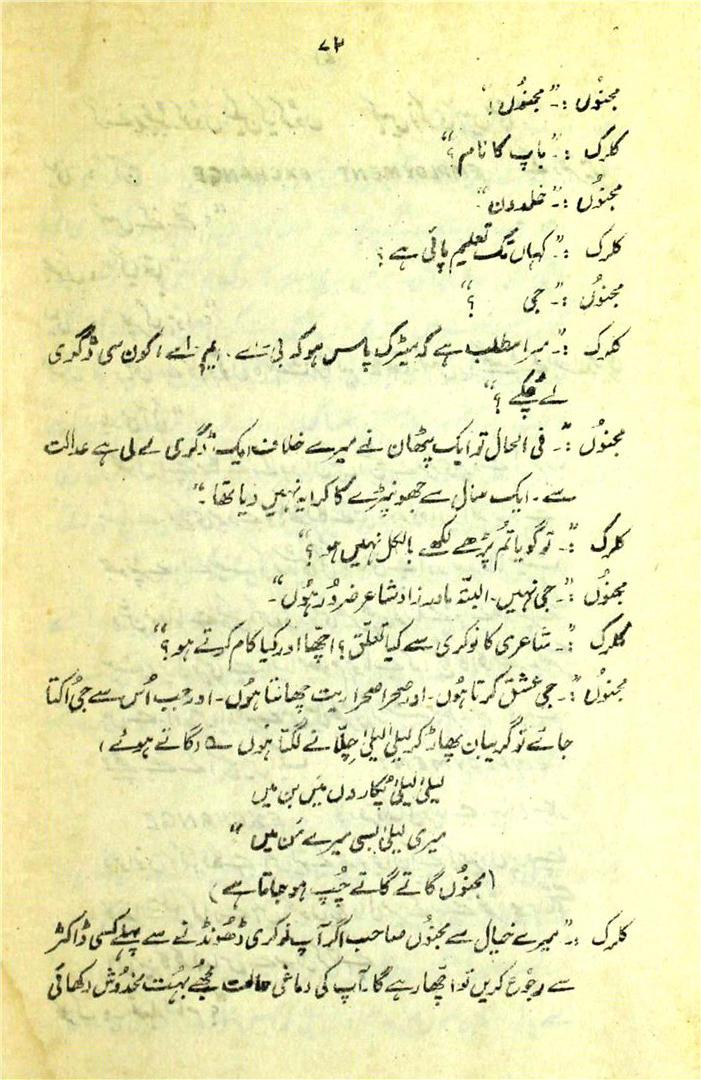 ۷۳
مجنوں :۔ "مجنُوں!"
کلرک :۔ "باپ کا نام؟"
مجنوں :۔ "خلدون"
کلرک :۔ "کہاں تک تعلیم پائی ہے؟
مجنوں :۔ "جی ؟"
کلرک :۔ "میرا مطلب ہے کہ میٹرک پاس ہو کہ بی۔ اے۔ ایم۔ اے؟ کون سی ڈگری
لے چکے ؟"
مجنوں :۔ "فی الحال تو ایک پٹھان نے میرے خلاف ایک ڈگری لے لی ہے عدالت
سے۔ ایک سال سے جھونپڑے کا کرایہ نہیں دیا تھا۔"
کلرک :۔ "تو گویا تم پڑھے لکھے بالکل نہیں ہو؟"
مجنوں :۔ "جی نہیں۔ البتّہ مادر زاد شاعر ضرور ہُوں"۔
کلرک :۔ "شاعری کا نوکری سے کیا تعلّق؟ اچّھا اور کیا کام کرتے ہو؟"
مجنوں :۔ "جی عشق کرتا ہُوں۔ اور صحرا صحرا ریت چھانتا ہُوں۔ اور جب اُس سے جی اُکتا
جائے تو گریبان پھاڑ کر لیلیٰ لیلیٰ چلّانے لگتا ہُوں ؎ (گاتے ہوئے)
لیلیٰ لیلیٰ پُکاروں مَیں بن میں
میری لیلیٰ بسی میرے مَن میں"
(مجنُوں گاتے گاتے چُپ ہو جاتا ہے)
کلرک :۔ "میرے خیال سے مجنُوں صاحب اگر آپ نوکری ڈھونڈنے سے پہلے کسی ڈاکٹر
سے رجُوع کریں تو اچّھا رہے گا۔ آپ کی دماغی حالت مجھے بہُت مخدُوش دکھائی